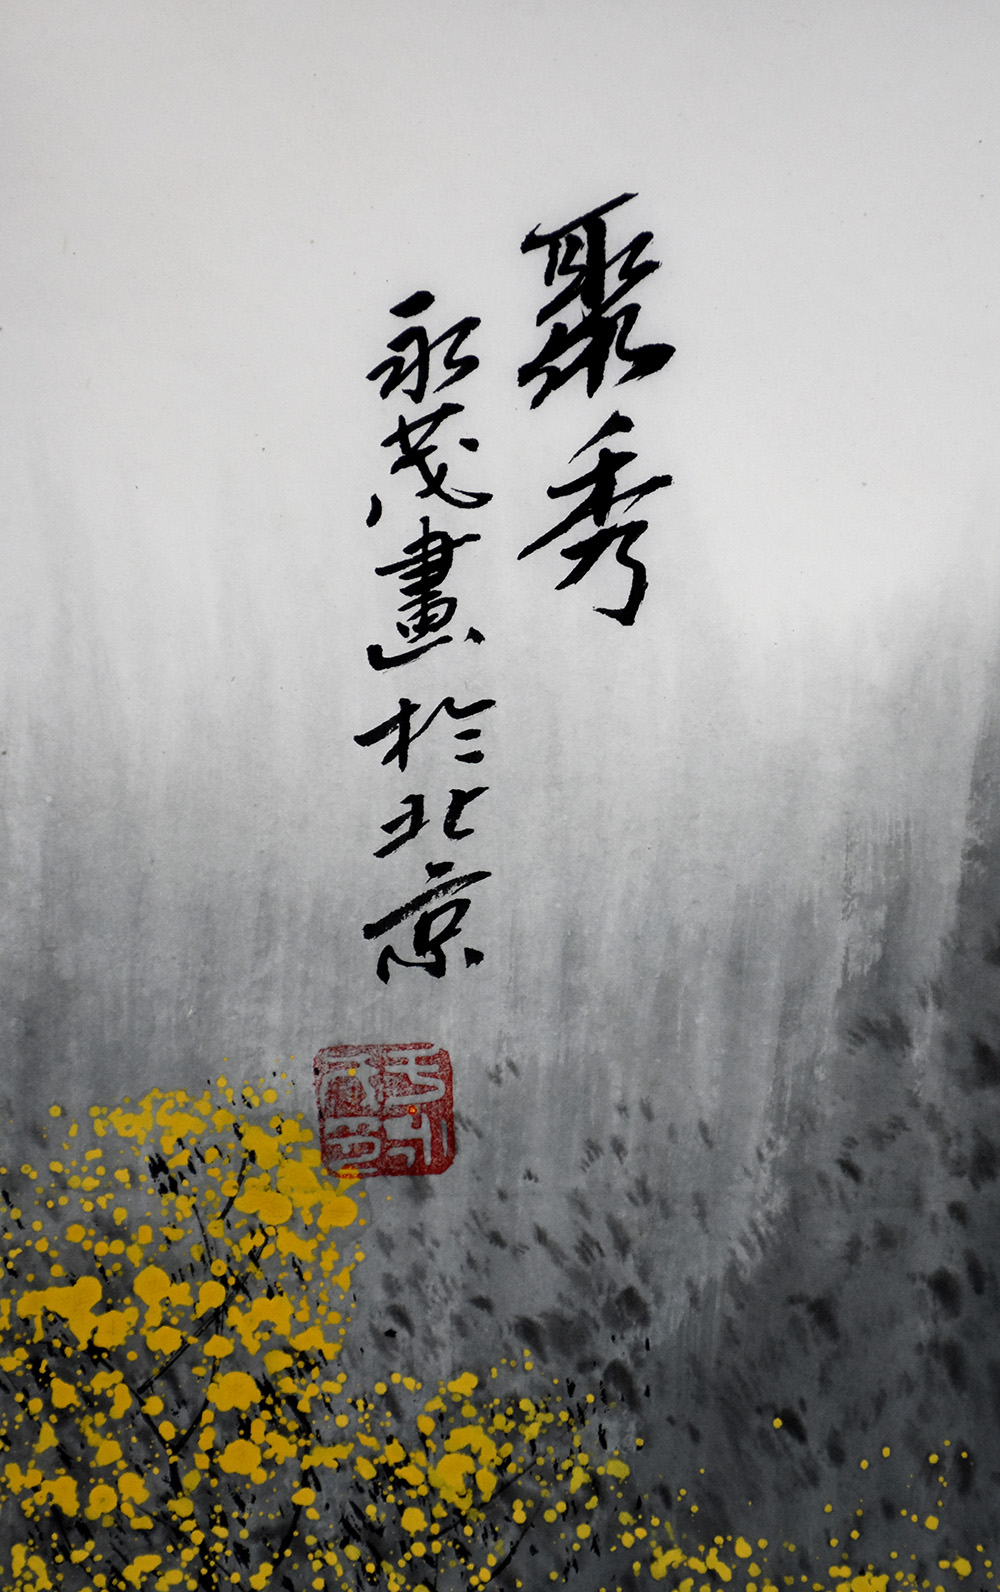 聚秀
永茂畫於北京